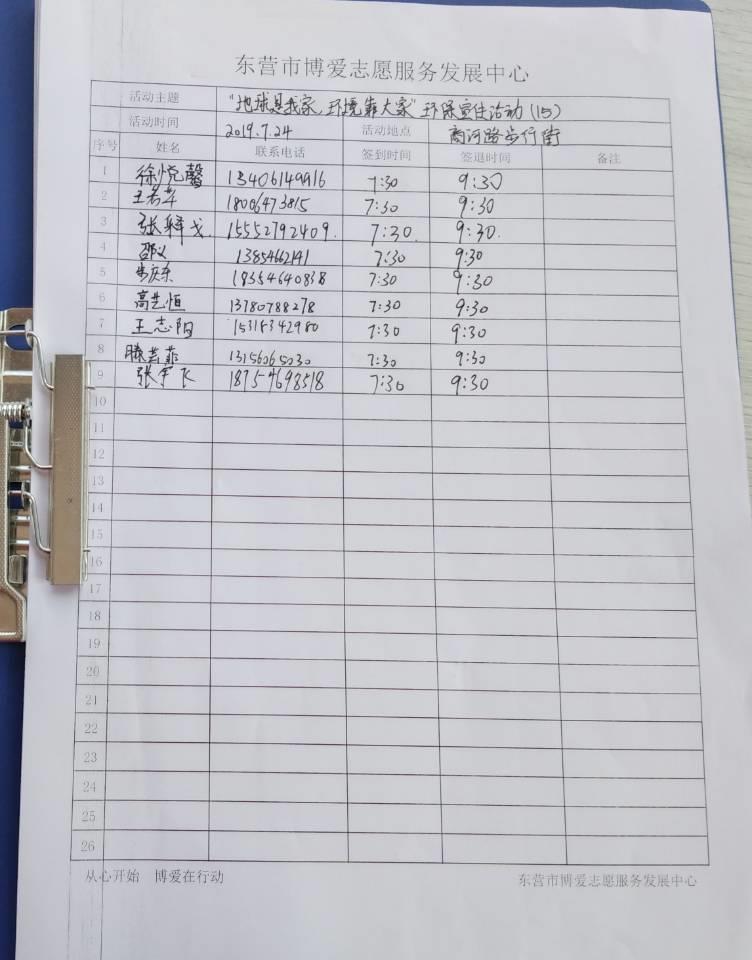 东营市博爱志愿服务发展中心
活动主题 "地球是我家,环境靠大家"环保宣传活动(15)
活动时间 2019.7.24 活动地点 商河路步行街
序号 姓名 联系电话 签到时间 签退时间 备注
1 徐悦馨 13406149916 7:30 9:30
2 王若 1806473815 7:30 9:30
3 张 15552792409. 7:30. 9:30.
4 邵义 13854662141 7:30 9:30
5 庆东 18554640838 7:30 9:30
6 高艺恒 13780788278 7:30 9:30
7 王志阳 15315342980 7:30 9:30
8 滕芸菲 13156065030 7:30 9:30
9 张宇飞 18754698518 7:30 9:30
10
11
12
13
14
15
16
17
18
19
20
21
22
23
24
25
26
从心开始 博爱在行动 东营市博爱志愿服务发展中心